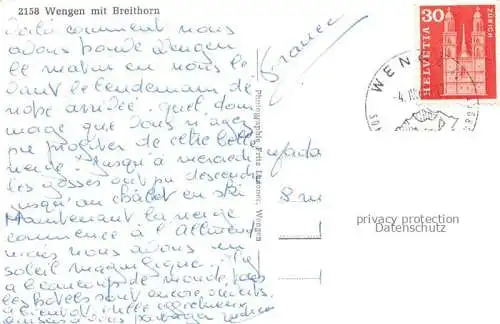 2158 Wengen mit Breithorn
Voilà comment nous
avons trouvé Wengen
le matin en nous le
vant le lendemain de
notre arrivée. quel dom
mage que vous n'ayez
pu profiter de cette belle
neige. Jusqu'à mercredi
les gosses ont pu descendre
jusqu'au châlet en ski
Maintenant la neige
commence à l'Allmend
mais nous avons un
soleil magnifique. Il y
a beaucoup de monde, tous
les hôtels sont encore ouverts.
à bientôt
France
Photographie Fritz Lauener, Wengen
30
HELVETIA
ZÜRICH
WENGEN
-4.
privacy protection
Datenschutz